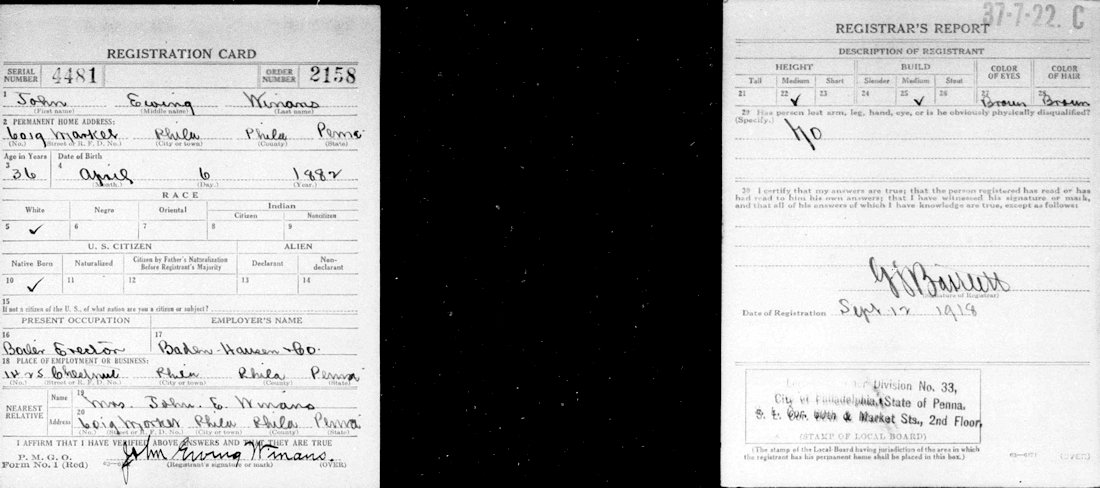 REGISTRATION CARD
SERIAL NUMBER 4481 ORDER NUMBER 2158
1 John Ewing Winans
(First name) (Middle name) (Last name)
2 PERMANENT HOME ADDRESS:
6019 Market Phila Phila Penna
(No.) (Street or R. F. D. No.) (City or town) (County) (State)
Age in Years Date of Birth
3 4
36 April 6 1882
(Month.) (Day.) (Year.)
RACE
White Negro Oriental Indian
Citizen Noncitizen
5 ✓ 6 7 8 9
U. S. CITIZEN ALIEN
Native Born Naturalized Citizen by Father's Naturalization Before Registrant's Majority Declarant Non-declarant
10 ✓ 11 12 13 14
15
If not a citizen of the U. S., of what nation are you a citizen or subject?
PRESENT OCCUPATION EMPLOYER'S NAME
16 17
Boiler Erector Baden-Hausen + Co.
18 PLACE OF EMPLOYMENT OR BUSINESS:
1425 Chestnut Phila Phila Penna
(No.) (Street or R. F. D. No.) (City or town) (County) (State)
NEAREST RELATIVE Name 19 Mrs. John. E. Winans
Address 20 6019 Market Phila Phila Penna
(No.) (Street or R. F. D. No.) (City or town) (County) (State)
I AFFIRM THAT I HAVE VERIFIED ABOVE ANSWERS AND THAT THEY ARE TRUE
P. M. G. O.
Form No. 1 (Red) John Ewing Winans.
(Registrant's signature or mark) (OVER)
37-7-22. C
REGISTRAR'S REPORT
DESCRIPTION OF REGISTRANT
HEIGHT BUILD COLOR OF EYES COLOR OF HAIR
Tall Medium Short Slender Medium Stout
21 22 ✓ 23 24 25 ✓ 26 27 Brown 28 Brown
29 Has person lost arm, leg, hand, eye, or is he obviously physically disqualified?
(Specify.) No
30 I certify that my answers are true; that the person registered has read or has
had read to him his own answers; that I have witnessed his signature or mark,
and that all of his answers of which I have knowledge are true, except as follows:
(Signature of Registrar)
Date of Registration Sept 12 1918
Division No. 33,
City of Philadelphia, State of Penna.
& Market Sts., 2nd Floor,
(STAMP OF LOCAL BOARD)
(The stamp of the Local Board having jurisdiction of the area in which
the registrant has his permanent home shall be placed in this box.)
63-6171 (OVER)